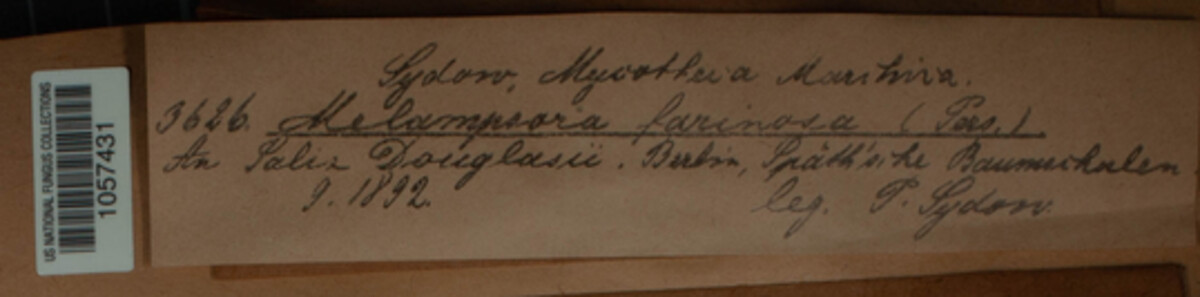 US NATIONAL FUNGUS COLLECTIONS
1057431
Sydow, Mycotheca Marchica.
3626. Melampsora farinosa (Pers.)
An Salix Douglasii. Berlin, Späth'sche Baumschulen
9. 1892.
leg. P. Sydow.